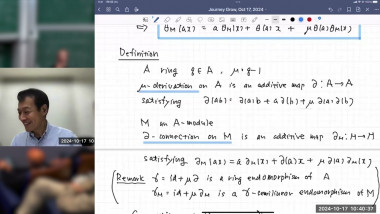 Journey Draw, Oct 17, 2024
⇒ ∂_M(ax) = a ∂_M(x) + ∂(a)x + μ ∂(a) ∂_M(x)
Definition
A ring q ∈ A, μ = q-1
μ-derivation on A is an additive map ∂: A → A
satisfying ∂(ab) = ∂(a)b + a∂(b) + μ ∂(a)∂(b)
M an A-module
∂-connection on M is an additive map ∂_M: M → M
satisfying ∂_M(ax) = a ∂_M(x) + ∂(a)x + μ ∂(a) ∂_M(x)
Remark γ = id + μ∂ is a ring endomorphism of A
γ_M = id + μ∂_M is a γ-semilinear endomorphism of M
2024-10-17 10:40:37